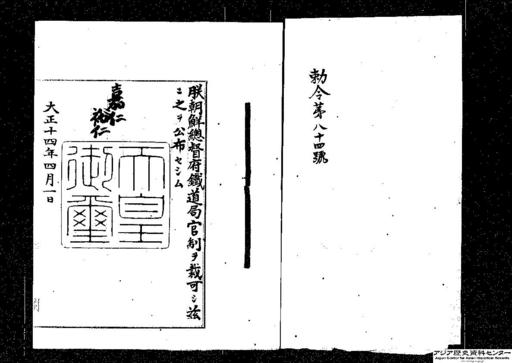 勅令第八十四號
朕朝鮮總督府鐵道局官制ヲ裁可シ茲
ニ之ヲ公布セシム
嘉仁
裕仁
天皇
御璽
大正十四年四月一日
アジア歴史資料センター
Japan Center for Asian Historical Records